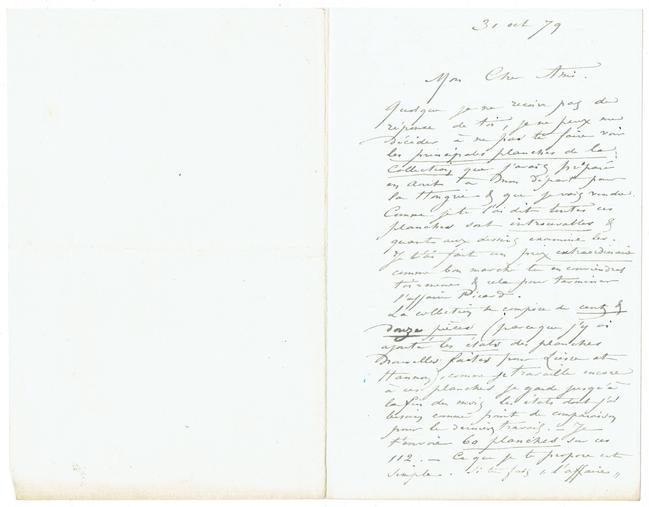 31 oct 79
Mon Cher Ami.
Quoique je ne reçoive pas de
réponse de toi, je ne peux me
décider à ne pas te faire voir
les principales planches de la
Collection que j'avais préparé
en Août à mon départ pour
la Hongrie & que je vais vendre.
Comme je te l'ai dit toutes ces
planches sont introuvables &
quants aux dessins examine les.
Je t'ai fait un prix extraordinaire
comme bon marché tu en conviendras
toi-même & cela pour terminer
l'affaire Picard.
La collection se compose de cent &
douze pièces (parceque j'y ai
ajouté les états des planches
nouvelles faites pour Liesse et
Hannon, comme je travaille encore
à ces planches je garde jusqu'à
la fin du mois les états dont j'ai
besoin comme point de comparaison
pour le dernier travail. — Je
t'envoie 60 planches sur ces
112. — Ce que je te propose est
simple. Si tu fais "l'affaire"